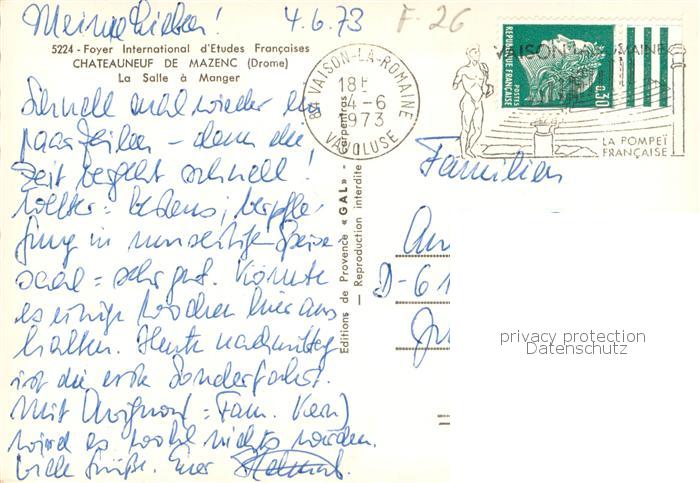 Meine Lieben! 4.6.73
F-26
5224 - Foyer International d'Etudes Françaises
CHATEAUNEUF DE MAZENC (Drome)
La Salle à Manger
Schnell mal wieder ein
paar Zeilen - denn die
Zeit vergeht schnell!
Wetter: bestens; Verpfle-
gung in umseitigem Speise
saal = sehr gut. Könnte
es einige Wochen hier aus
halten. Heute nachmittag
ist die erste Sonderfahrt.
Mit Avignon (= Fam. Kern)
wird es wohl nichts werden.
Viele Grüße. Euer Helmut.
84 VAISON-LA-ROMAINE
18H
4-6
1973
VAUCLUSE
VAISON-LA-ROMAINE
LA POMPEÏ
FRANÇAISE
POSTES
RÉPUBLIQUE FRANÇAISE
0,30
Editions de Provence «GAL» - Carpentras
— Reproduction interdite —
Familien
D-61
privacy protection
Datenschutz